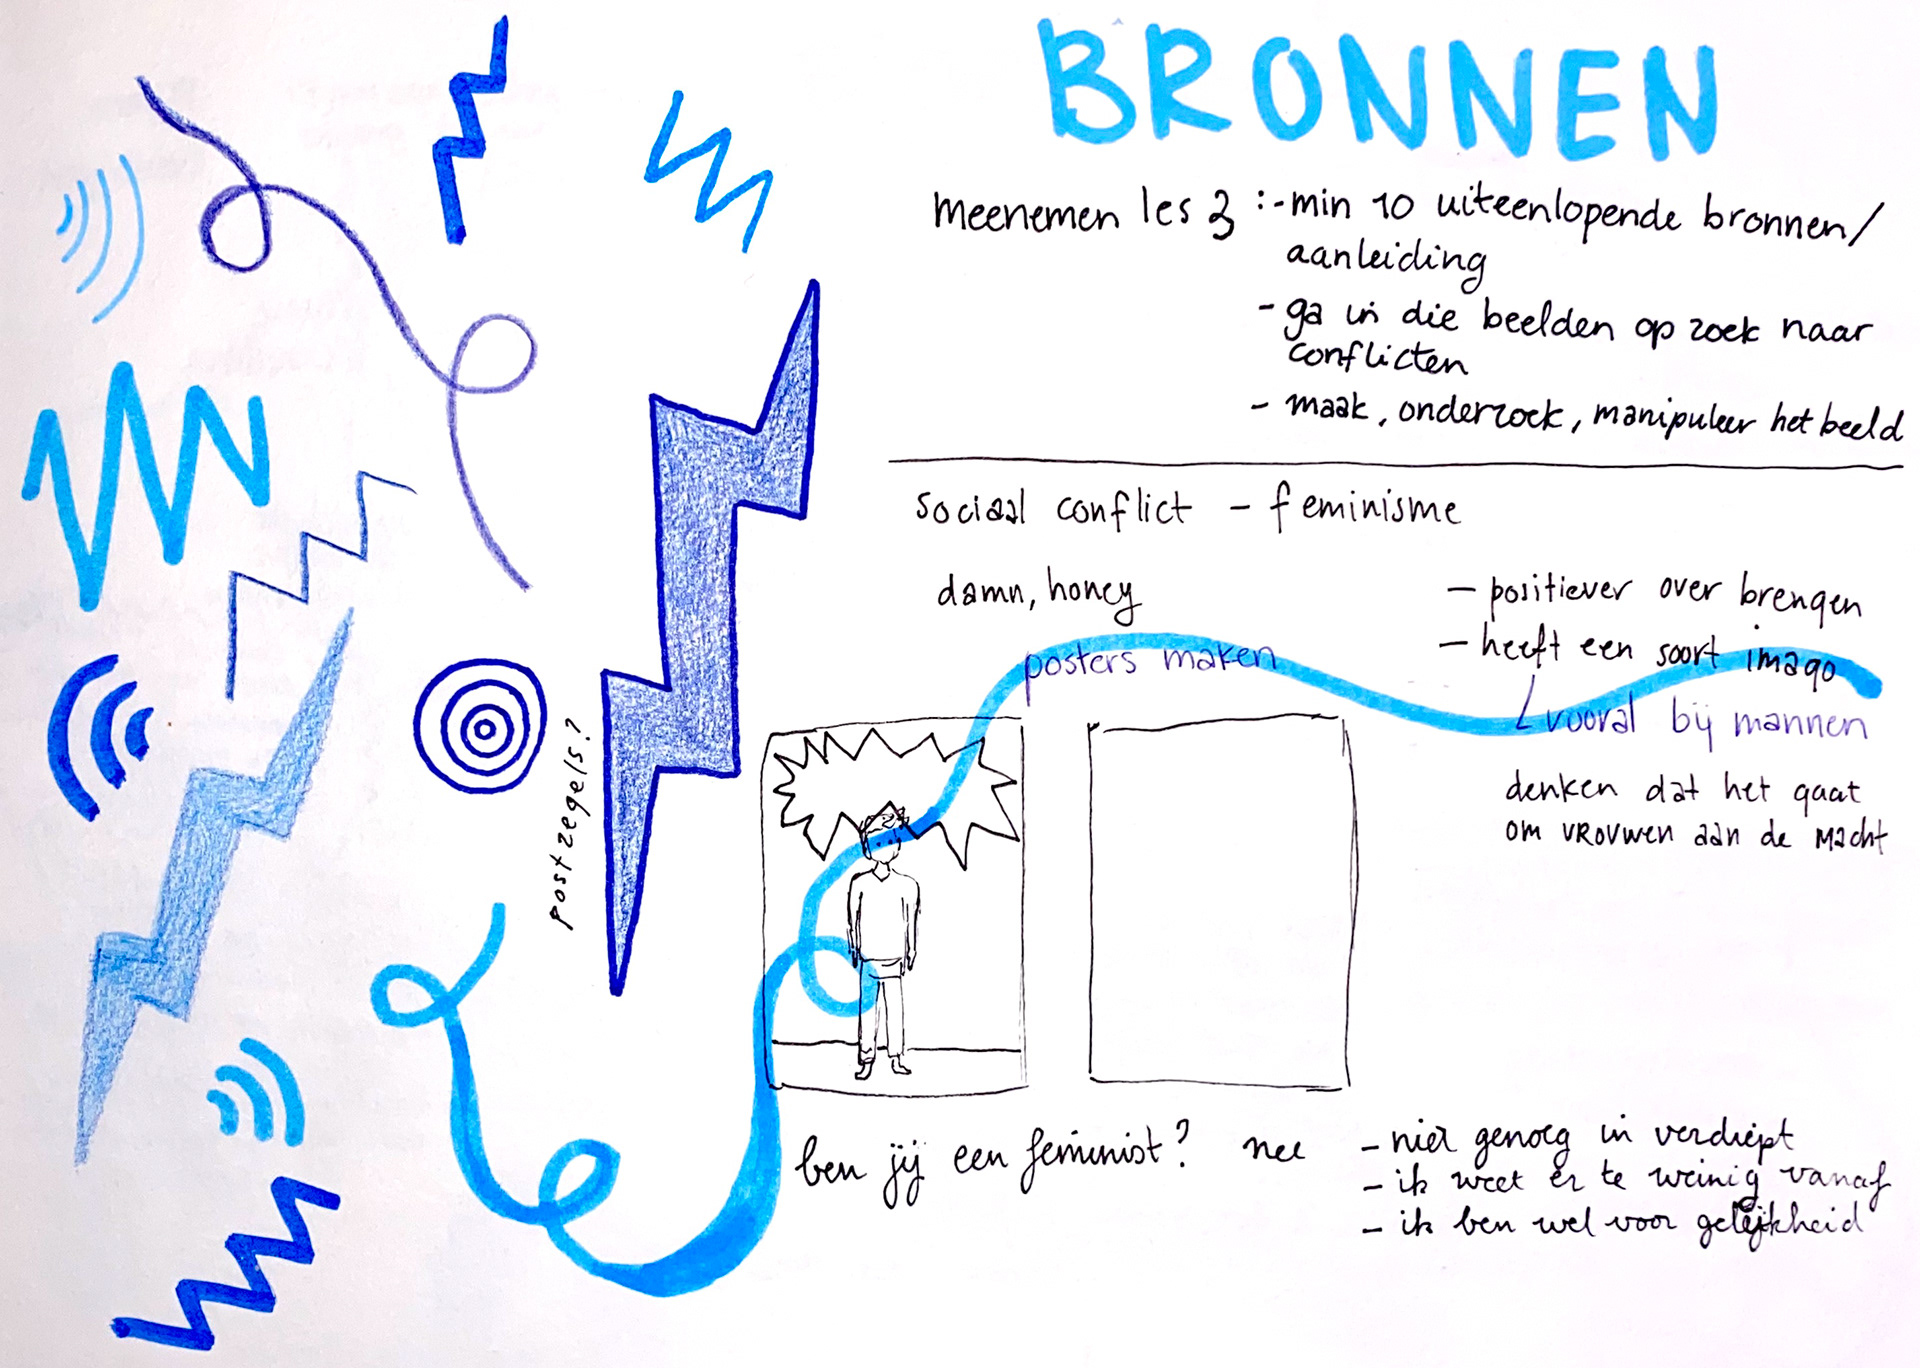 BRONNEN
meenemen les 3 :- min 10 uiteenlopende bronnen/
aanleiding
- ga in die beelden op zoek naar
conflicten
- maak, onderzoek, manipuleer het beeld
sociaal conflict - feminisme
damn, honey
- positiever over brengen
- heeft een soort imago
posters maken
vooral bij mannen
denken dat het gaat
om vrouwen aan de macht
postzegels?
ben jij een feminist? nee
- niet genoeg in verdiept
- ik weet er te weinig vanaf
- ik ben wel voor gelijkheid